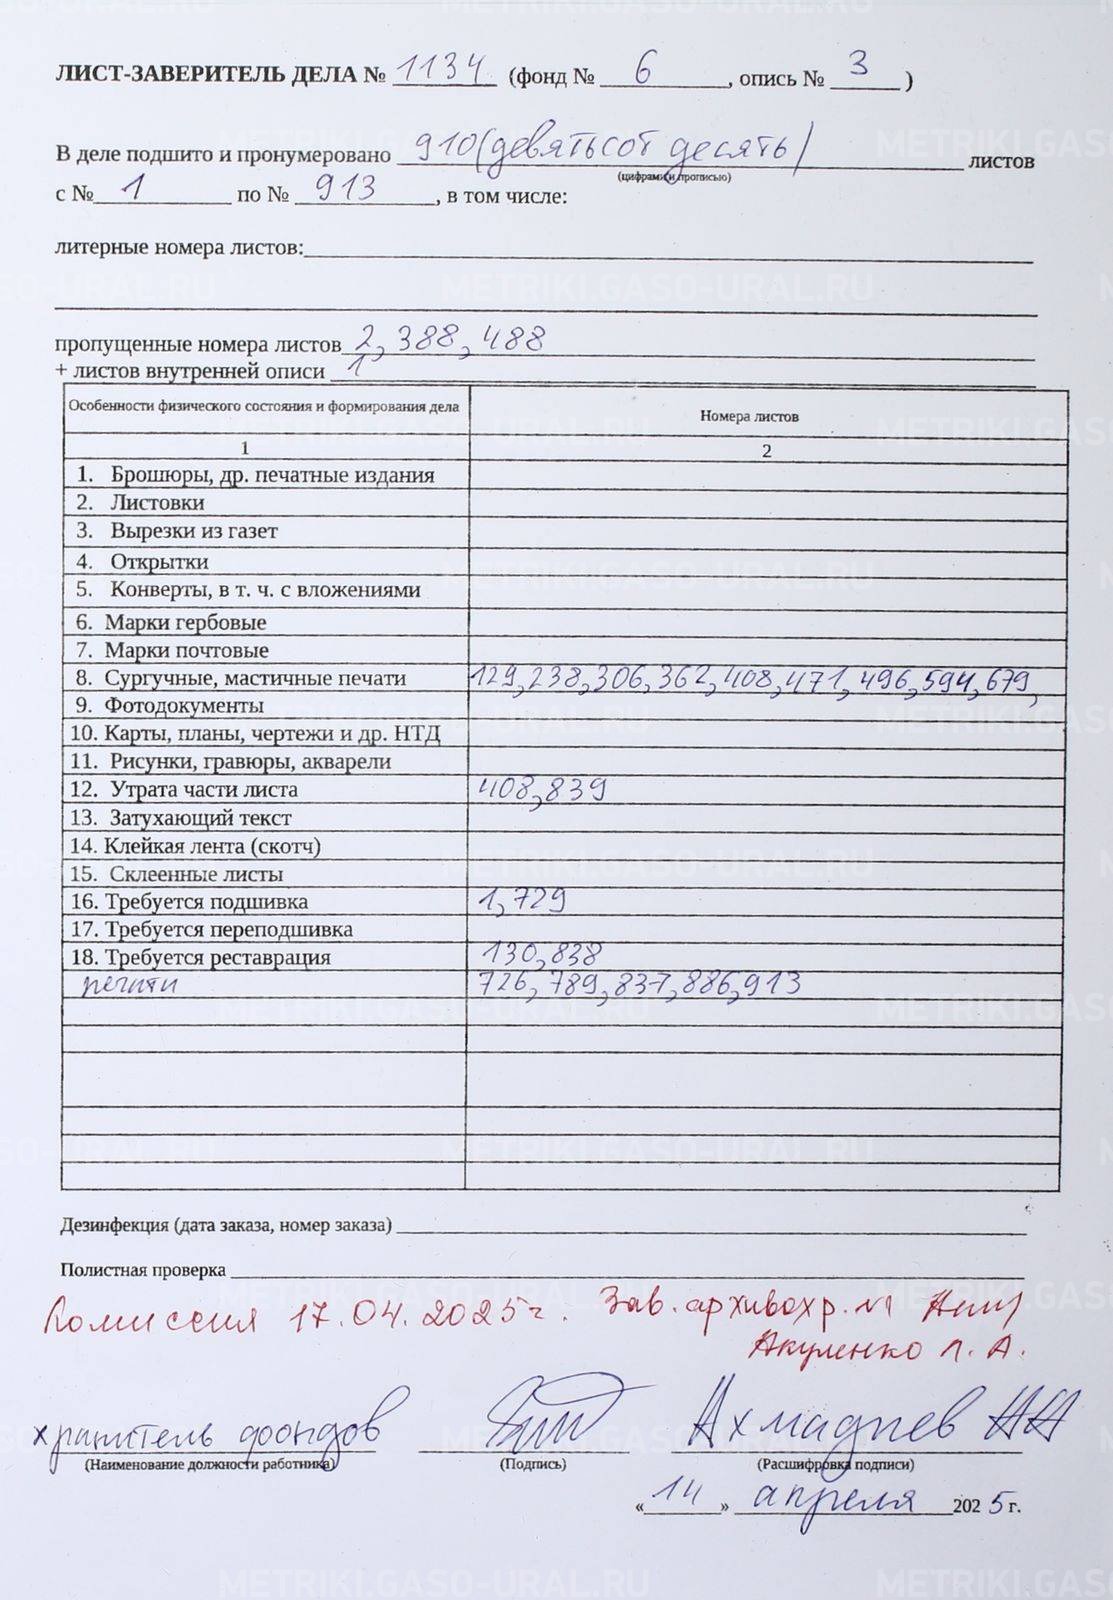 ЛИСТ-ЗАВЕРИТЕЛЬ ДЕЛА № 1134 (фонд № 6, опись № 3)
В деле подшито и пронумеровано 910 (девятьсот десять) листов
(цифрами и прописью)
с № 1 по № 913, в том числе:
литерные номера листов:
пропущенные номера листов 2, 388, 488
+ листов внутренней описи 1
Особенности физического состояния и формирования дела Номера листов
1 2
1. Брошюры, др. печатные издания
2. Листовки
3. Вырезки из газет
4. Открытки
5. Конверты, в т. ч. с вложениями
6. Марки гербовые
7. Марки почтовые
8. Сургучные, мастичные печати 129, 238, 306, 362, 408, 471, 496, 594, 679,
9. Фотодокументы
10. Карты, планы, чертежи и др. НТД
11. Рисунки, гравюры, акварели
12. Утрата части листа 408, 839
13. Затухающий текст
14. Клейкая лента (скотч)
15. Склеенные листы
16. Требуется подшивка 1, 729
17. Требуется переподшивка
18. Требуется реставрация 130, 838
печати 726, 789, 837, 886, 913
Дезинфекция (дата заказа, номер заказа)
Полистная проверка
Комиссия 17.04.2025 г. Зав. архивохр. №1
Акуленко Л. А.
хранитель фондов Ахмадиев АА
(Наименование должности работника) (Подпись) (Расшифровка подписи)
«14» апреля 2025 г.
METRIKI.GASO-URAL.RU